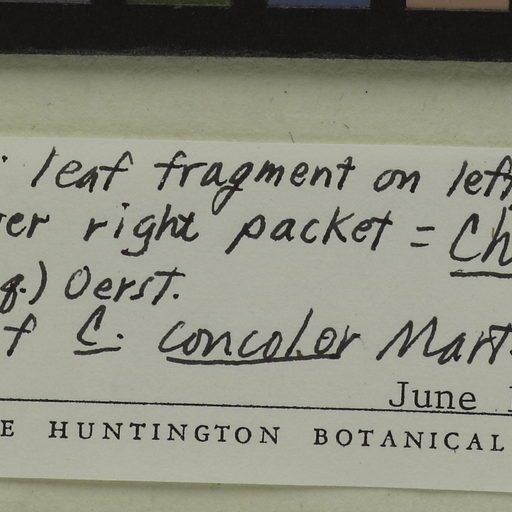 leaf fragment on left
er right packet = Ch
q.) Oerst.
f C. concolor Mart.
June 1
E HUNTINGTON BOTANICAL